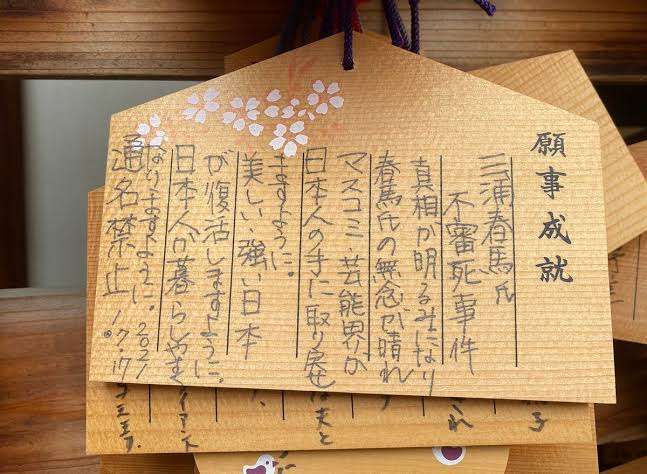 願事成就
三浦春馬氏
不審死事件
真相が明るみになり
春馬氏の無念が晴れ
マスコミ・芸能界が
日本人の手に取り戻せ
ますように。
美しい強い日本
が復活しますように。
日本人が暮らしやすく
なりますように。2021
通名禁止 1.7.17